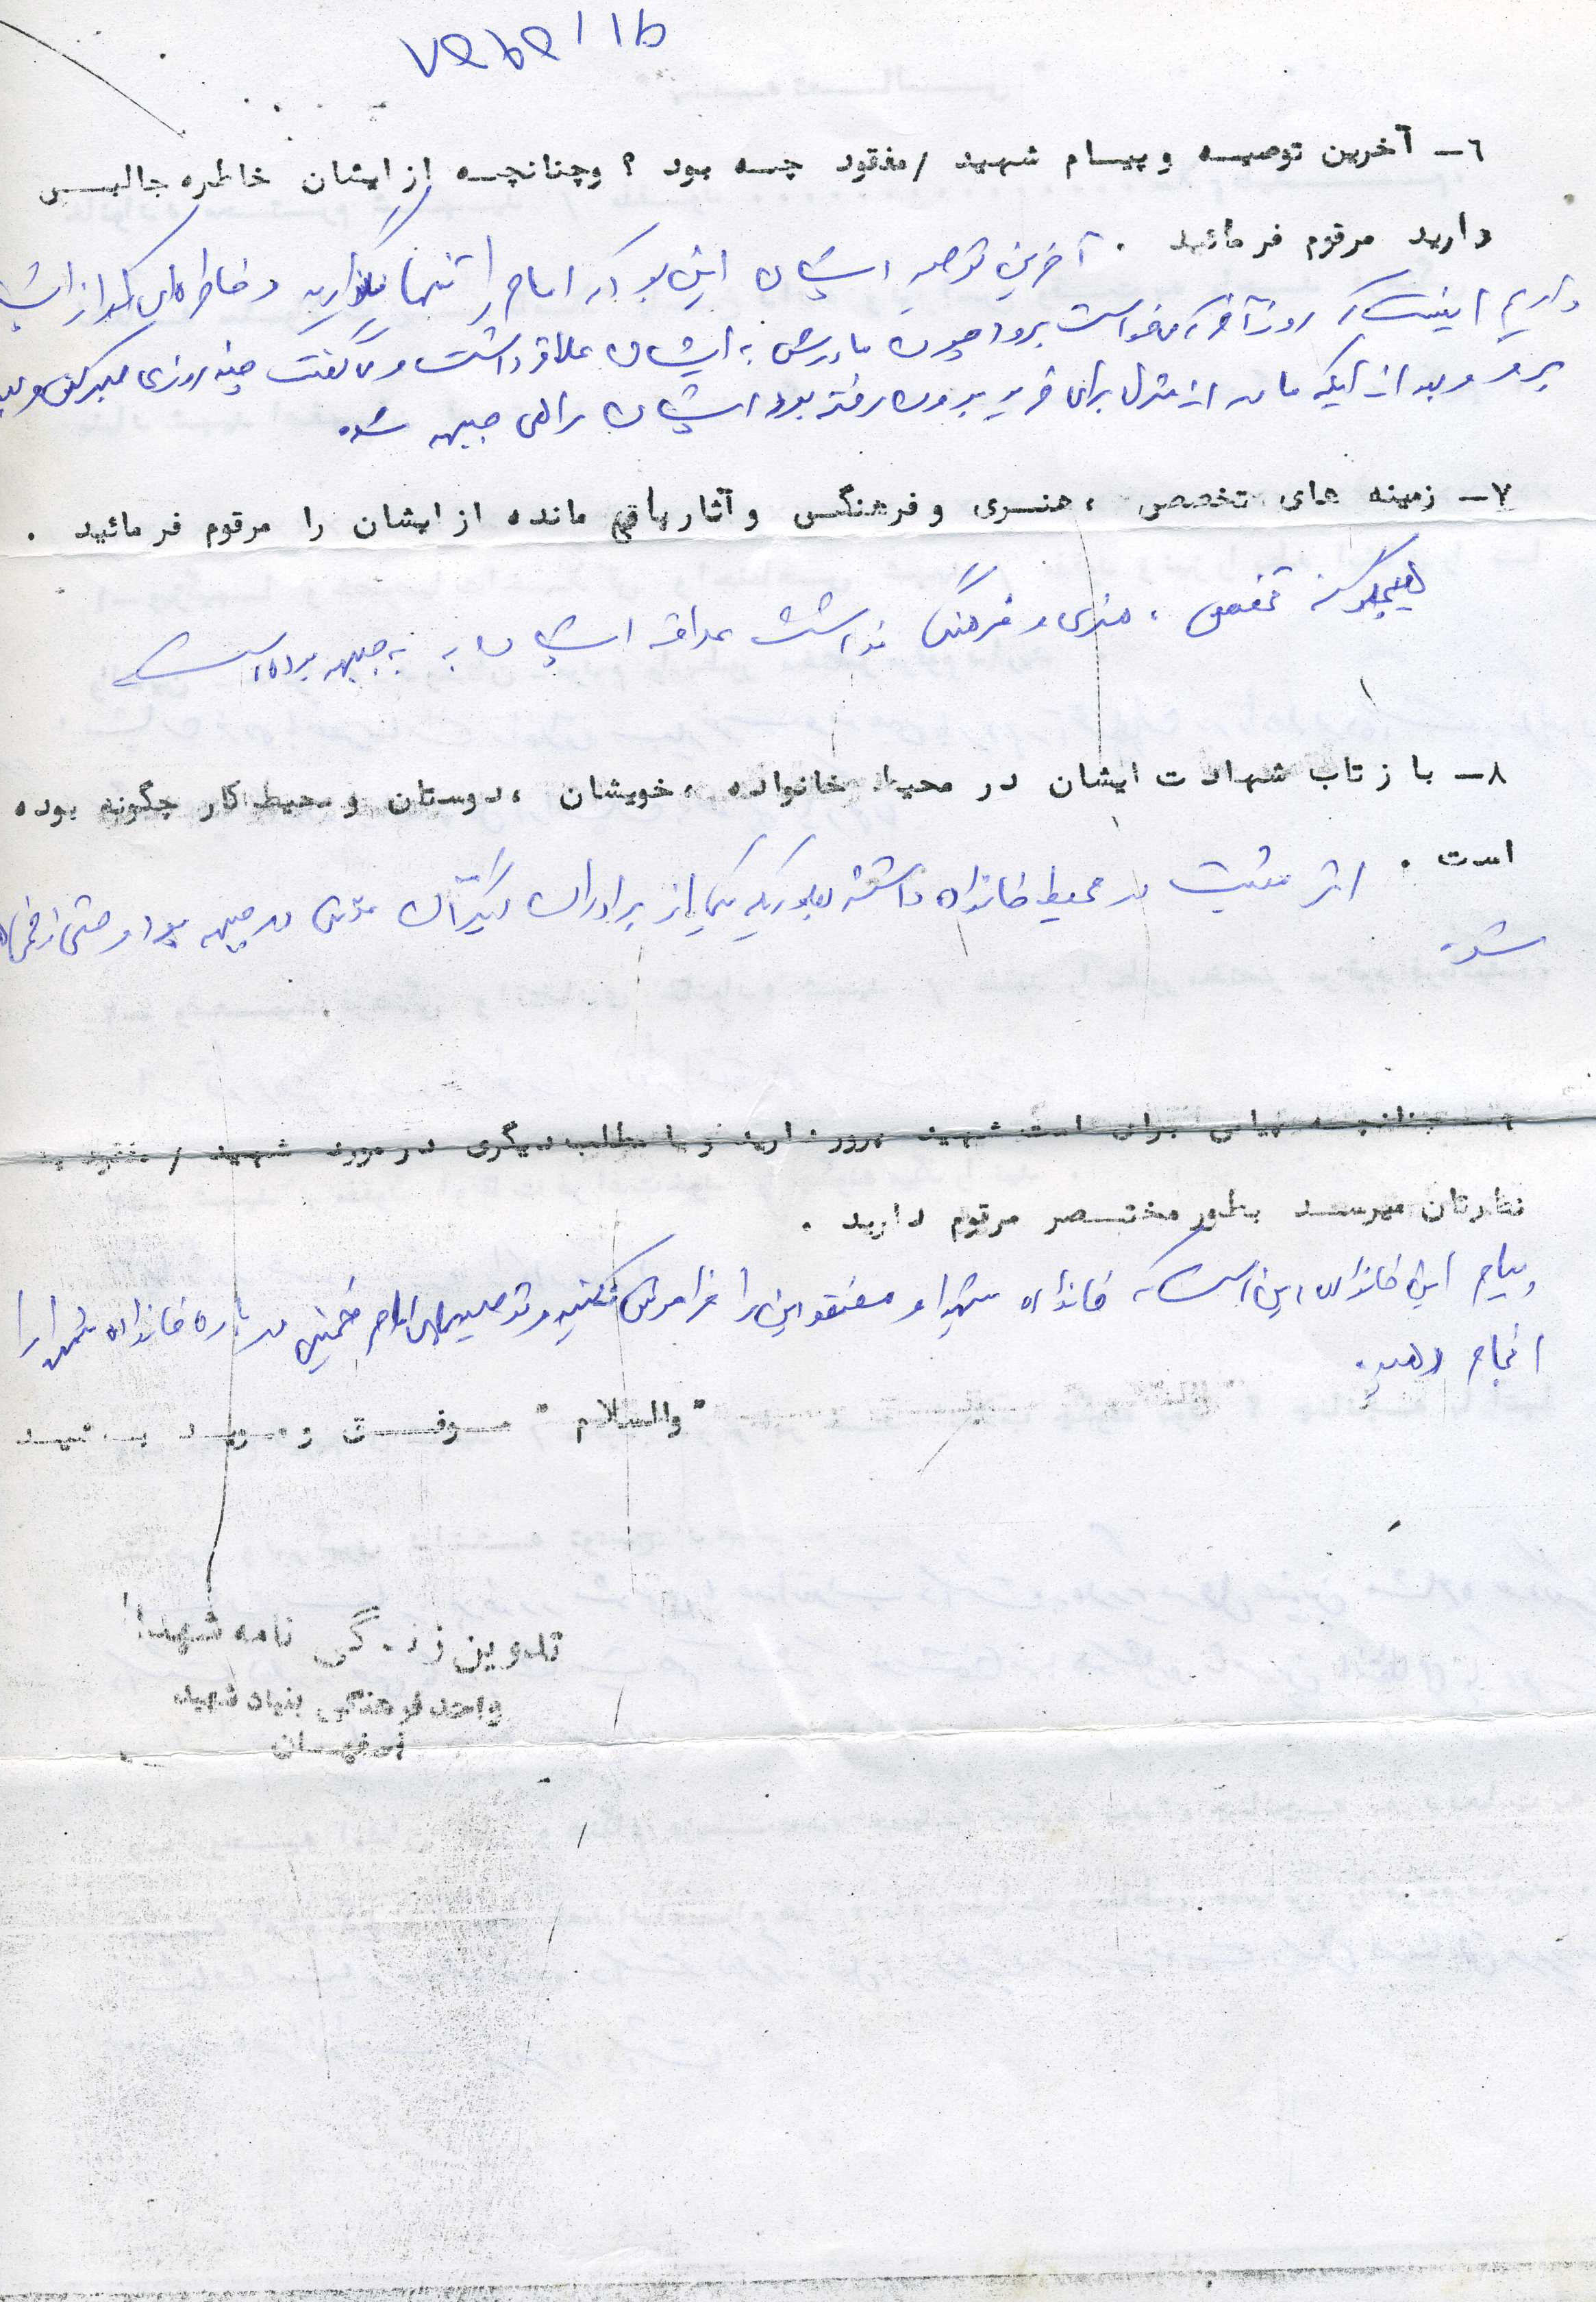 ۶ـ آخرین توصیه و پیام شهید / مفقود چه بود ؟ و چنانچه از ایشان خاطره جالبی
دارید مرقوم فرمائید . آخرین توصیه ایشان این بود که امام را تنها نگذارید و خاطره‌ای که از ایشان
داریم اینست که روز آخر که می‌خواست برود چون مادرش به ایشان علاقه داشت و می‌گفت چند روزی صبر کن و بعد
برو و بعد از اینکه مادر از منزل برای خرید بیرون رفته بود ایشان راهی جبهه شد.
۷ـ زمینه های تخصصی ، هنری و فرهنگی و آثار باقی مانده از ایشان را مرقوم فرمائید .
هیچگونه تخصصی ، هنری و فرهنگی نداشت علاقه ایشان به جبهه بوده است
۸ـ بازتاب شهادت ایشان در محیط خانواده ، خویشان ، دوستان و محیط کار چگونه بوده
است . اثر مثبت در محیط خانواده داشته بطوریکه یکی از برادران دیگرشان مدتی در جبهه بود و حتی زخمی
شد.
۹ـ چنانچه پیامی برای امت شهید پرور دارید و یا مطلب دیگری در مورد شهید / مفقود به
نظرتان میرسد بطور مختصر مرقوم دارید .
پیام این خانواده این است که خانواده شهدا و مفقودین را فراموش نکنید و توصیه‌های امام خمینی درباره خانواده شهدا را
انجام دهید.
" والسلام " موفق و موید باشید
تدوین زندگی نامه شهدا
واحد فرهنگی بنیاد شهید
اصفهان